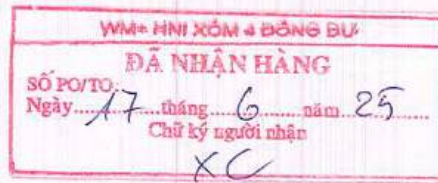 WM+ HNI XÓM 4 ĐÔNG DƯ
ĐÃ NHẬN HÀNG
SỐ PO/TO:
Ngày.....17.....tháng.....6.....năm...25.....
Chữ ký người nhận
XC